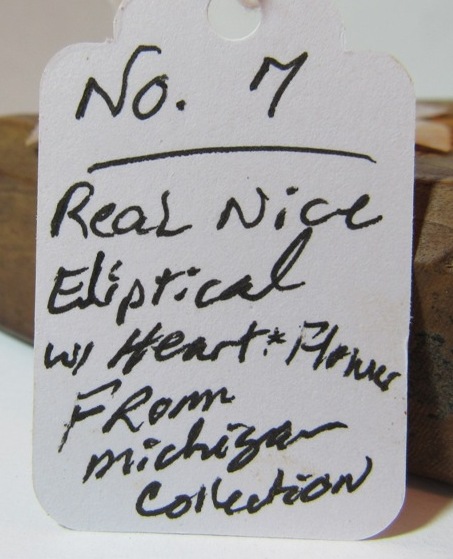 No. 7
Real Nice
Eliptical
w/ Heart * Flower
From
michigan
Collection